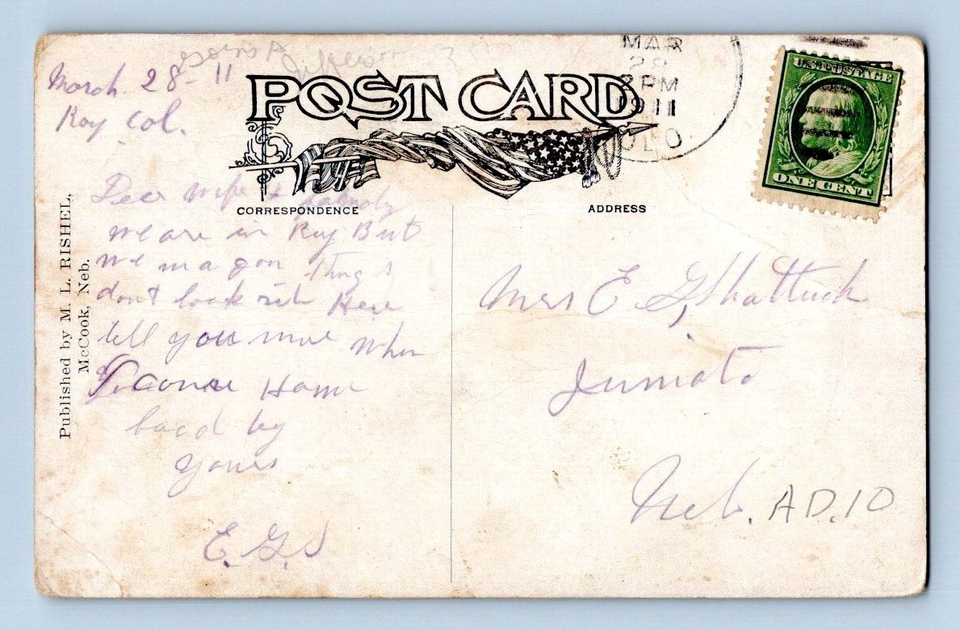 March 28-11
Roy Col.
POST CARD
MAR
28
3 PM
1911
OLO.
U.S. POSTAGE
ONE CENT
CORRESPONDENCE
ADDRESS
Dear wife & family
we are in Roy But
we in a gon thing s
dont look rit Here
tell you more when
I come Home
good by
yours
E. G. S
Mrs E G, Shattuck
Juniata
Neb.
AD.10
Published by M. L. RISHEL,
McCook, Neb.